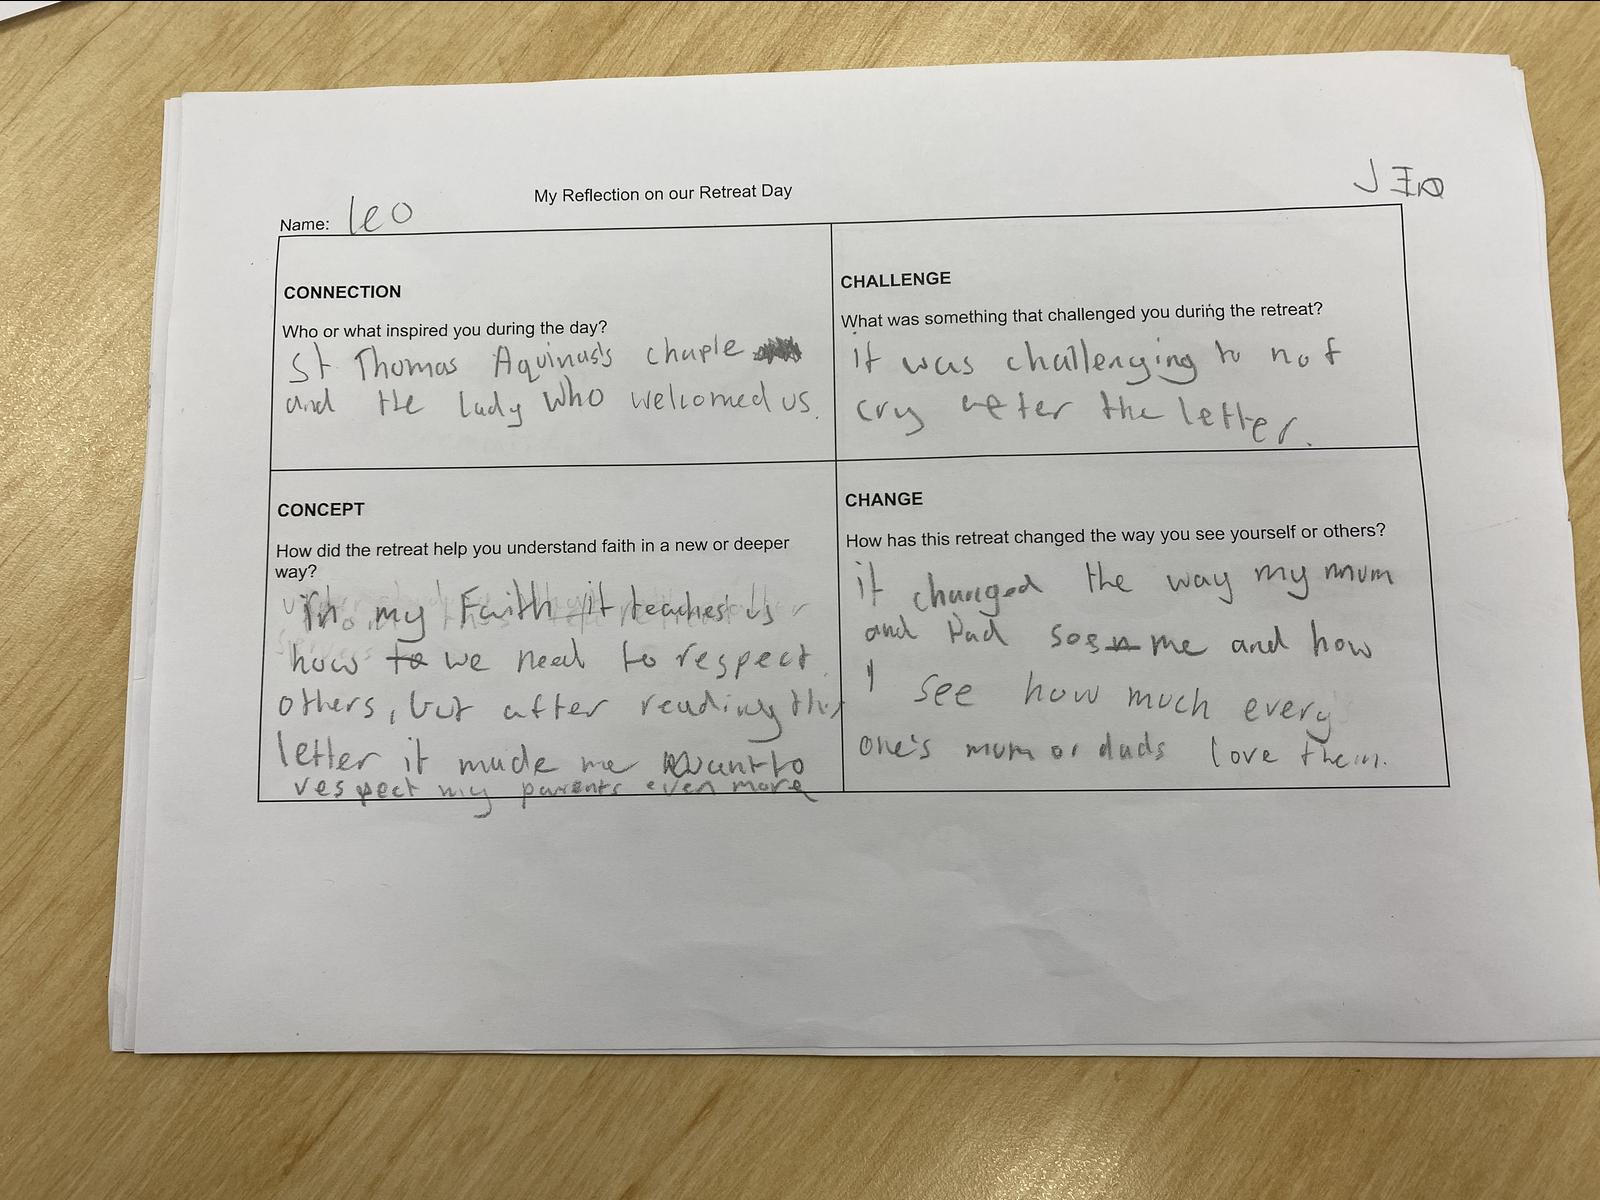 My Reflection on our Retreat Day
Name: leo
CONNECTION
Who or what inspired you during the day?
St Thomas Aquinas's chaple
and the lady who welcomed us.
CHALLENGE
What was something that challenged you during the retreat?
it was challenging to not
cry after the letter.
CONCEPT
How did the retreat help you understand faith in a new or deeper
way?
In my Faith it teaches us
how to we need to respect
others, but after reading this
letter it made me want to
respect my parents even more
CHANGE
How has this retreat changed the way you see yourself or others?
it changed the way my mum
and Dad me and how
I see how much every
one's mum or dads love them.